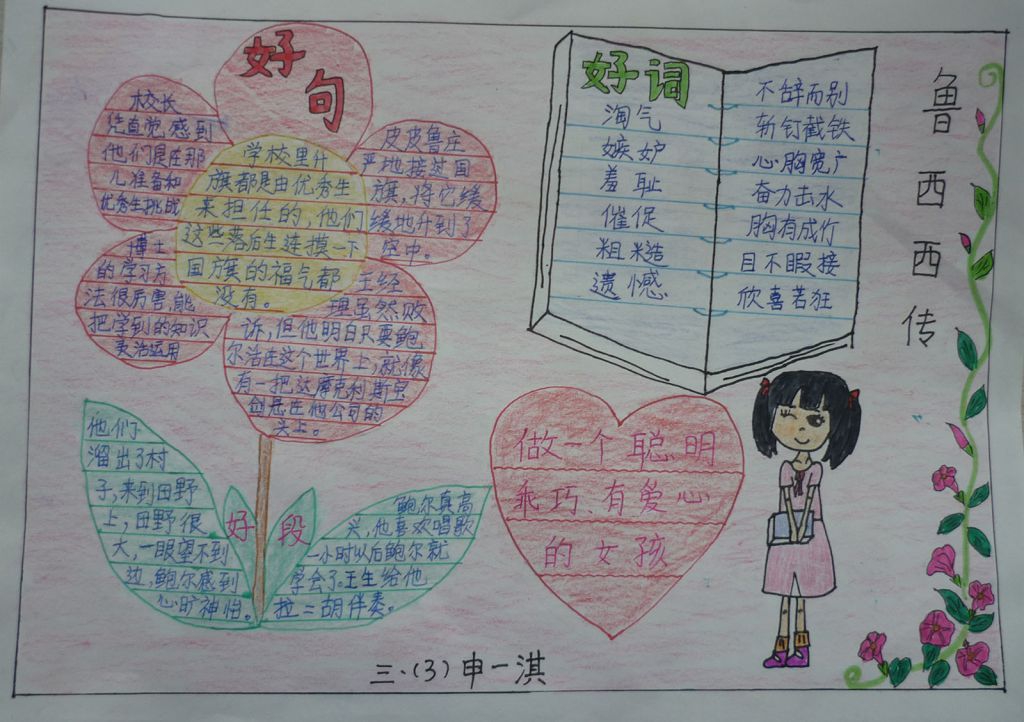 好
句
校长
凭直觉感到
他们是在那
儿准备和
优秀生挑战
学校里升
旗都是由优秀生
来担任的,他们
这些落后生连摸一下
国旗的福气都
没有。
皮皮鲁庄
严地接过国
旗,将它缓
缓地升到了
空中。
博士
的学习方
法很厉害,能
把学到的知识
灵活运用
王经
理虽然败
诉,但他明白只要鲍
尔浩在这个世界上,就像
有一把达摩克利斯宝
剑悬在他公司的
头上。
他们
溜出了村
子,来到田野
上,田野很
大,一眼望不到
边,鲍尔感到
心旷神怡。
好段
鲍尔真高
兴,他喜欢唱歌
一小时以后鲍尔就
学会了。王生给他
拉二胡伴奏。
好词
淘气
嫉妒
羞耻
催促
粗糙
遗憾
不辞而别
斩钉截铁
心胸宽广
奋力击水
胸有成竹
目不暇接
欣喜若狂
鲁西西传
做一个聪明
乖巧、有爱心
的女孩
三.(3)申一淇